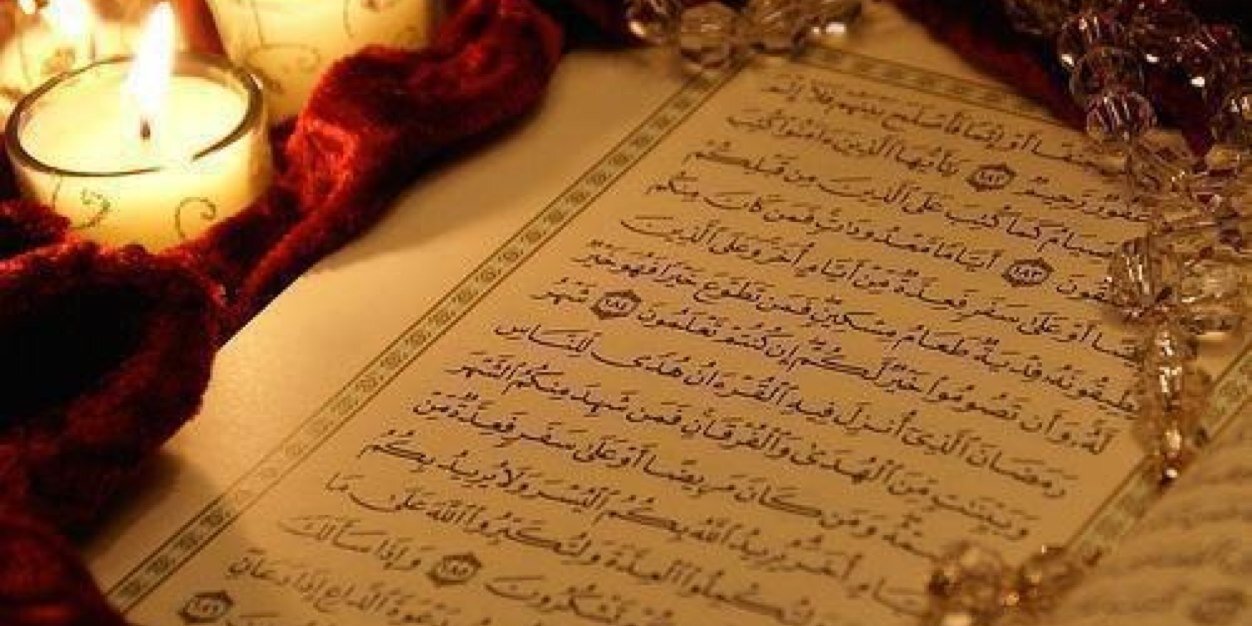 أَوْ إِثْمًا فَأَصْلَحَ بَيْنَهُمْ فَلَآ إِثْمَ
غَفُورٌ رَّحِيمٌ ١٨٢ يَٰٓأَيُّهَا ٱلَّذِينَ ءَامَنُوا۟ كُتِبَ
ٱلصِّيَامُ كَمَا كُتِبَ عَلَى ٱلَّذِينَ مِن قَبْلِكُمْ
تَتَّقُونَ ١٨٣ أَيَّامًا مَّعْدُودَٰتٍ فَمَن كَانَ مِنكُم
أَوْ عَلَىٰ سَفَرٍ فَعِدَّةٌ مِّنْ أَيَّامٍ أُخَرَ وَعَلَى ٱلَّذِينَ
يُطِيقُونَهُۥ فِدْيَةٌ طَعَامُ مِسْكِينٍ فَمَن تَطَوَّعَ خَيْرًا فَهُوَ خَيْرٌ
لَّهُۥ وَأَن تَصُومُوا۟ خَيْرٌ لَّكُمْ إِن كُنتُمْ تَعْلَمُونَ ١٨٤ شَهْرُ
رَمَضَانَ ٱلَّذِىٓ أُنزِلَ فِيهِ ٱلْقُرْءَانُ هُدًى لِّلنَّاسِ
وَبَيِّنَٰتٍ مِّنَ ٱلْهُدَىٰ وَٱلْفُرْقَانِ فَمَن شَهِدَ مِنكُمُ ٱلشَّهْرَ
وَمَن كَانَ مَرِيضًا أَوْ عَلَىٰ سَفَرٍ فَعِدَّةٌ مِّنْ
أَيَّامٍ أُخَرَ يُرِيدُ ٱللَّهُ بِكُمُ ٱلْيُسْرَ وَلَا يُرِيدُ بِكُمُ
وَلِتُكْمِلُوا۟ ٱلْعِدَّةَ وَلِتُكَبِّرُوا۟ ٱللَّهَ عَلَىٰ مَا
تَشْكُرُونَ ١٨٥ وَإِذَا سَأَلَكَ
دَعْوَةَ ٱلدَّاعِ إِذَا دَعَانِ
١٨٦